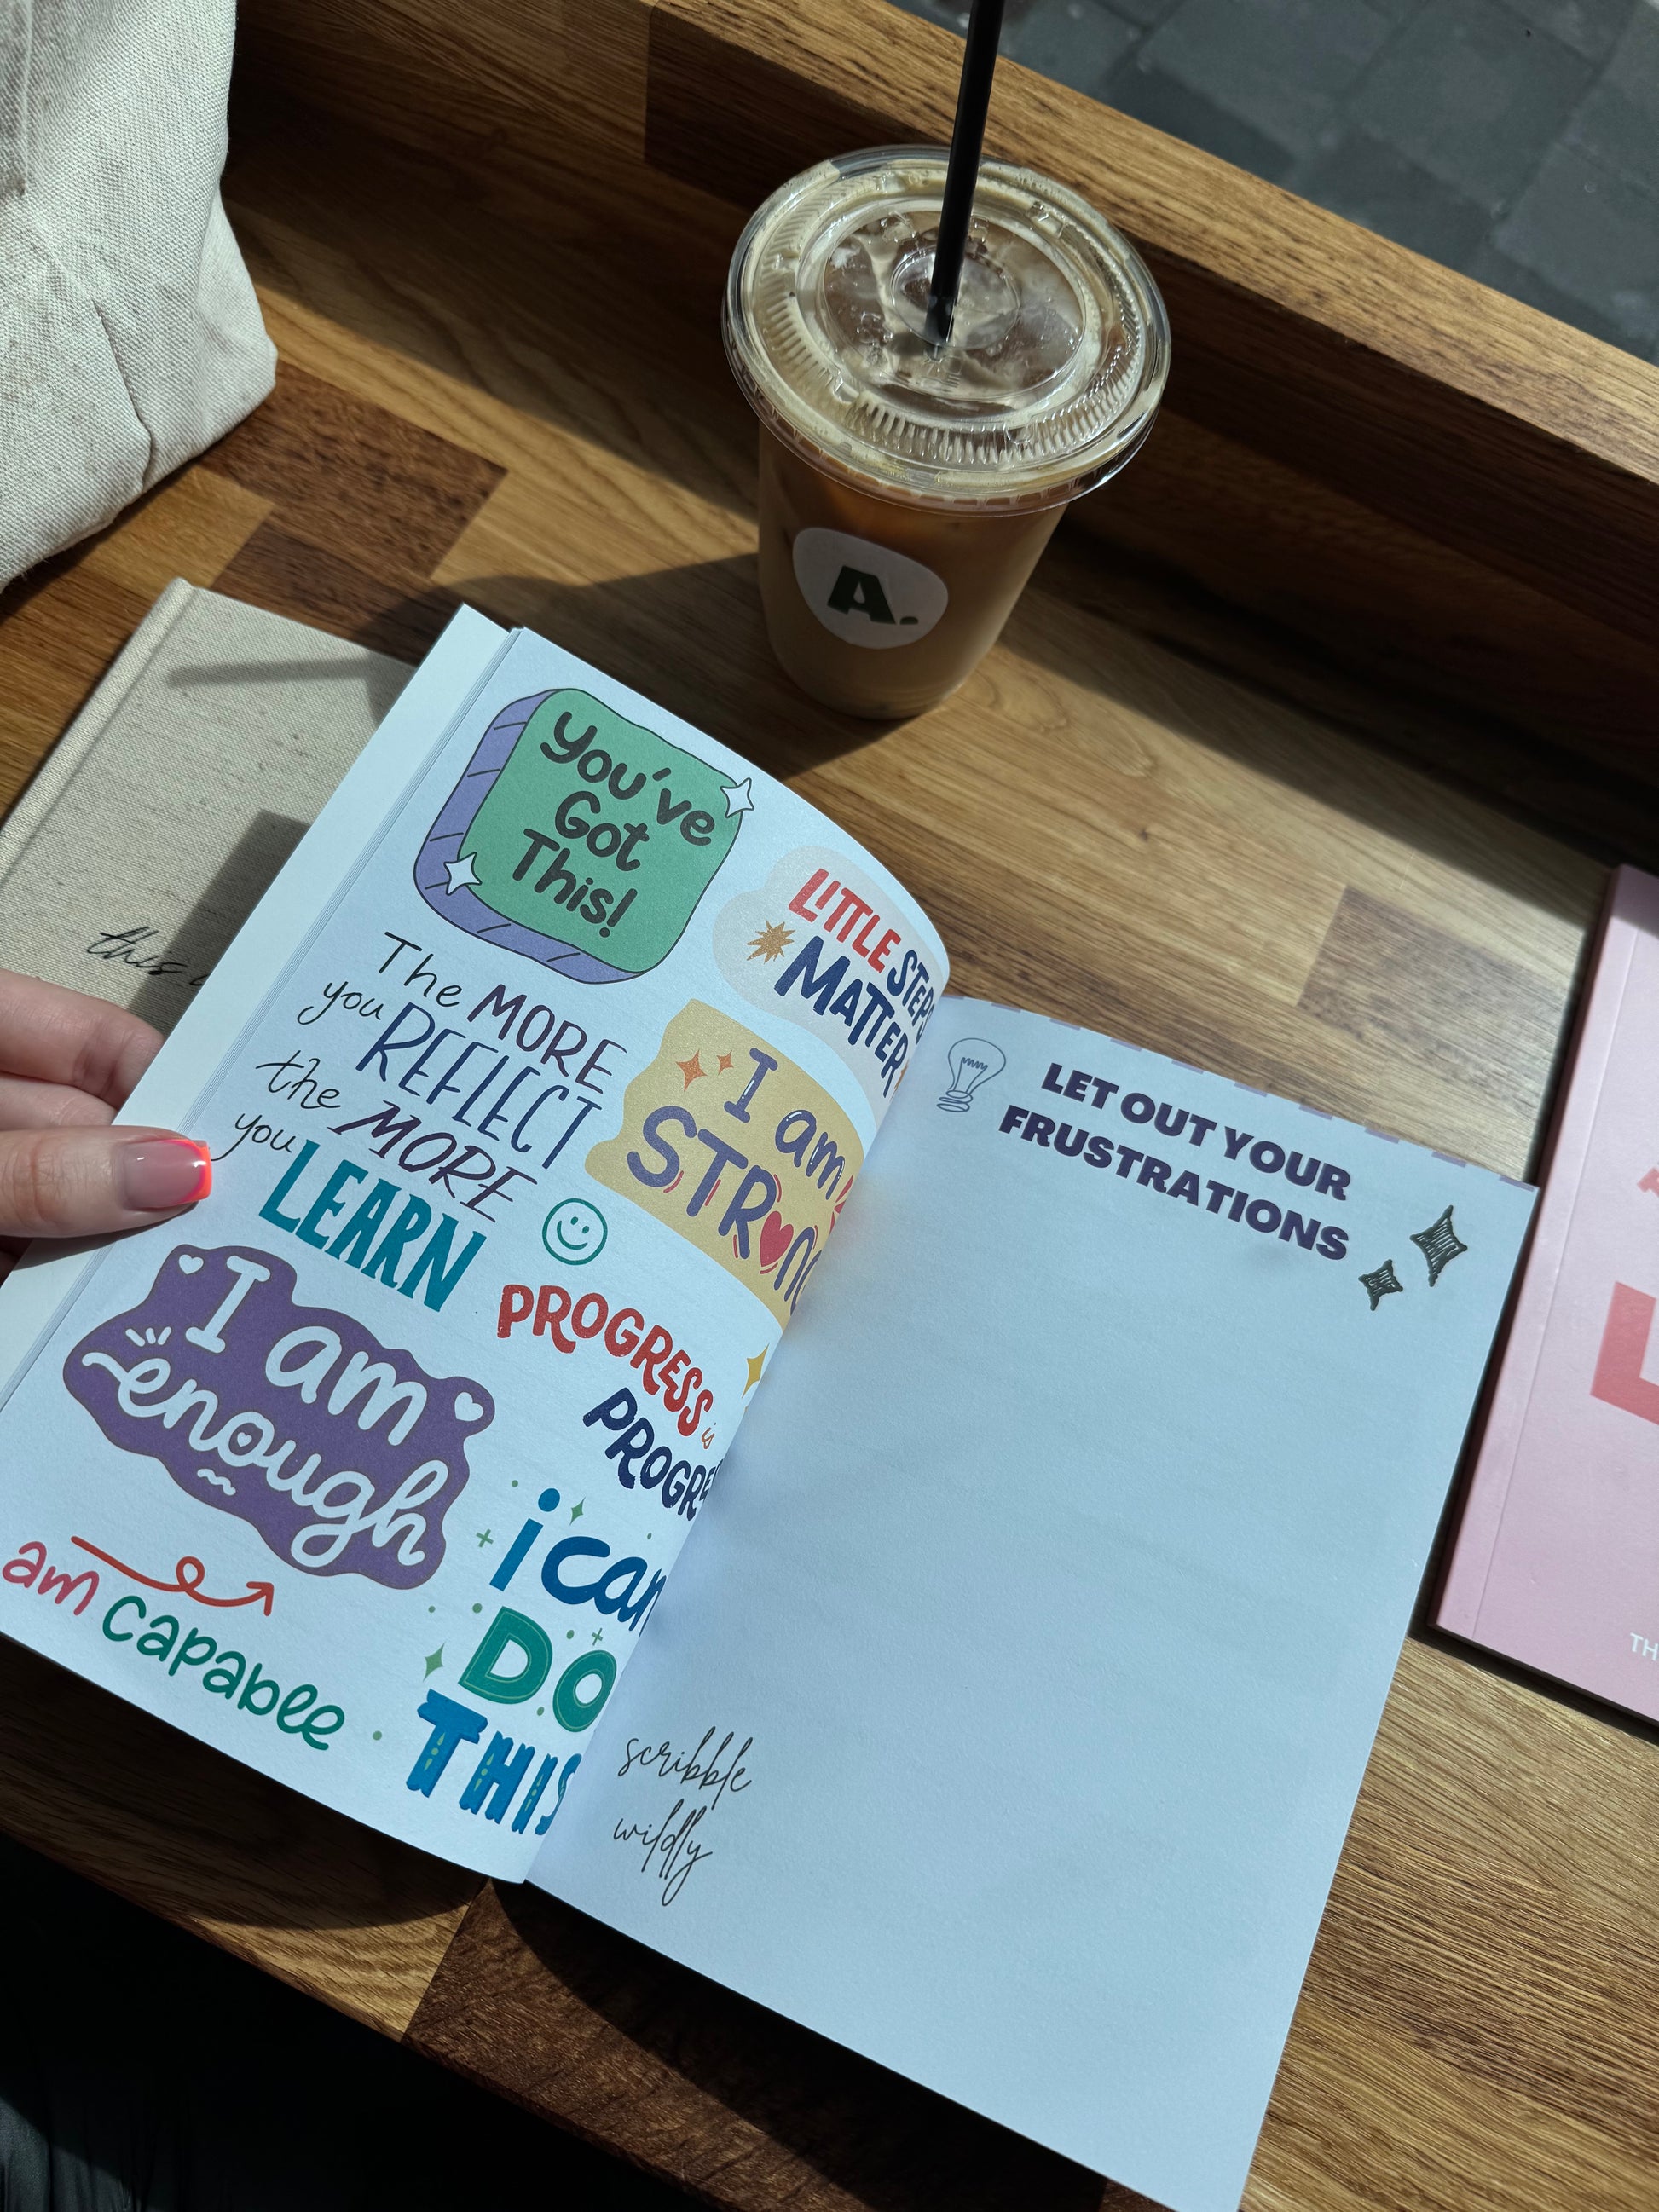 A.
You've
Got
This!
LITTLE STEPS
MATTER
The MORE
you REFLECT
the MORE
you LEARN
I am
STRONG
I am
enough
PROGRESS is
PROGRE
am capable
i can
DO
THIS
LET OUT YOUR
FRUSTRATIONS
scribble
wildly
this
TH